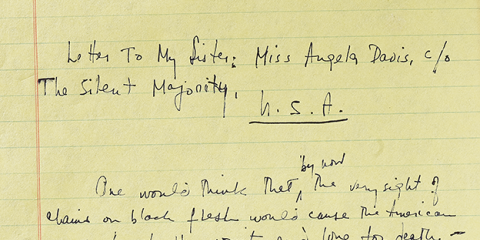 Letter To My Sister: Miss Angela Davis, c/o
The Silent Majority,
U.S.A.
by now
One would think that, the very sight of
chains on black flesh would cause the American